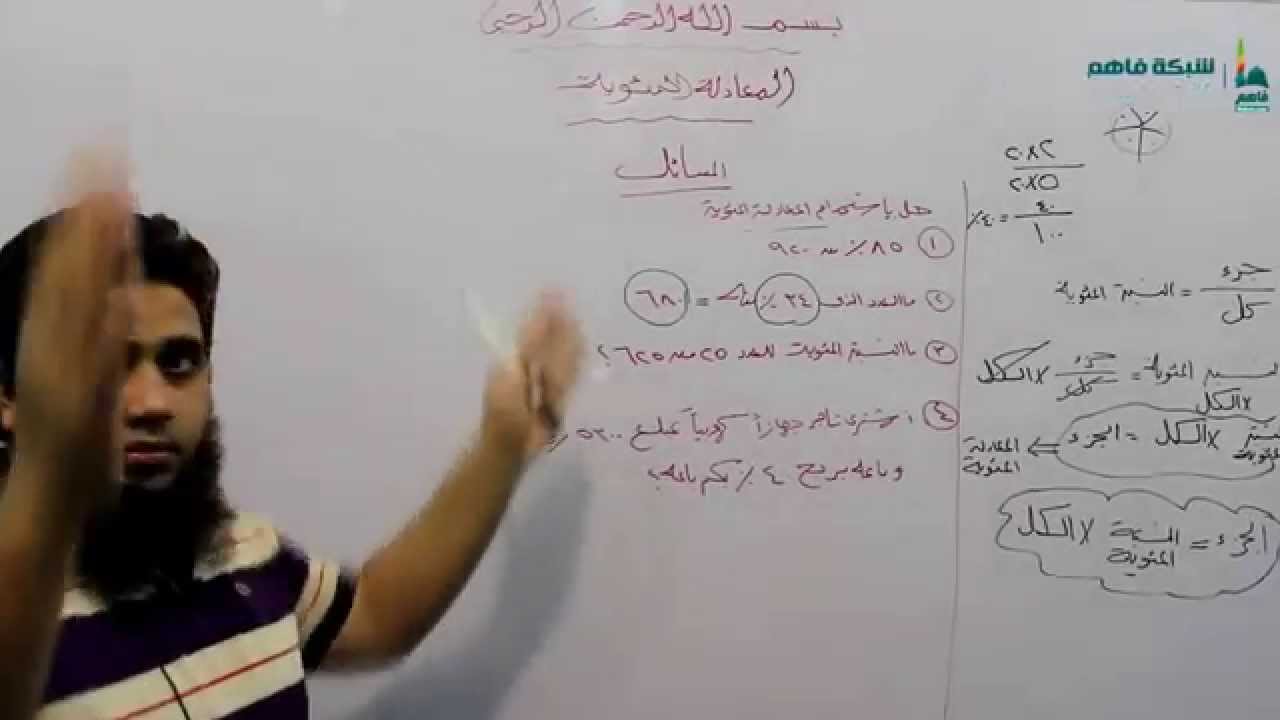 بسم الله الرحمن الرحيم
المعادلة المئوية
المسائل
حل باستخدام المعادلة المئوية
١ ٨٥٪ من ٩٢٠
٢ ما العدد الذي ٣٤٪ منه = ٦٨٠
٣ ما النسبة المئوية للعدد ٢٥ من ٦٢٥ ؟
٤ اشترى تاجر جهازاً كهربياً بمبلغ ٥٢٠٠
وباعه بربح ٤٪ فكم باعه
شبكة فاهم
فاهم
٢×٢٠
٥×٢٠
٤٠ / ١٠٠ = ٤٠٪
جزء / كل = النسبة المئوية
النسبة المئوية = جزء / كل × الكل
× الكل
المئوية × الكل = الجزء ⇐ المعادلة المئوية
الجزء = النسبة المئوية × الكل